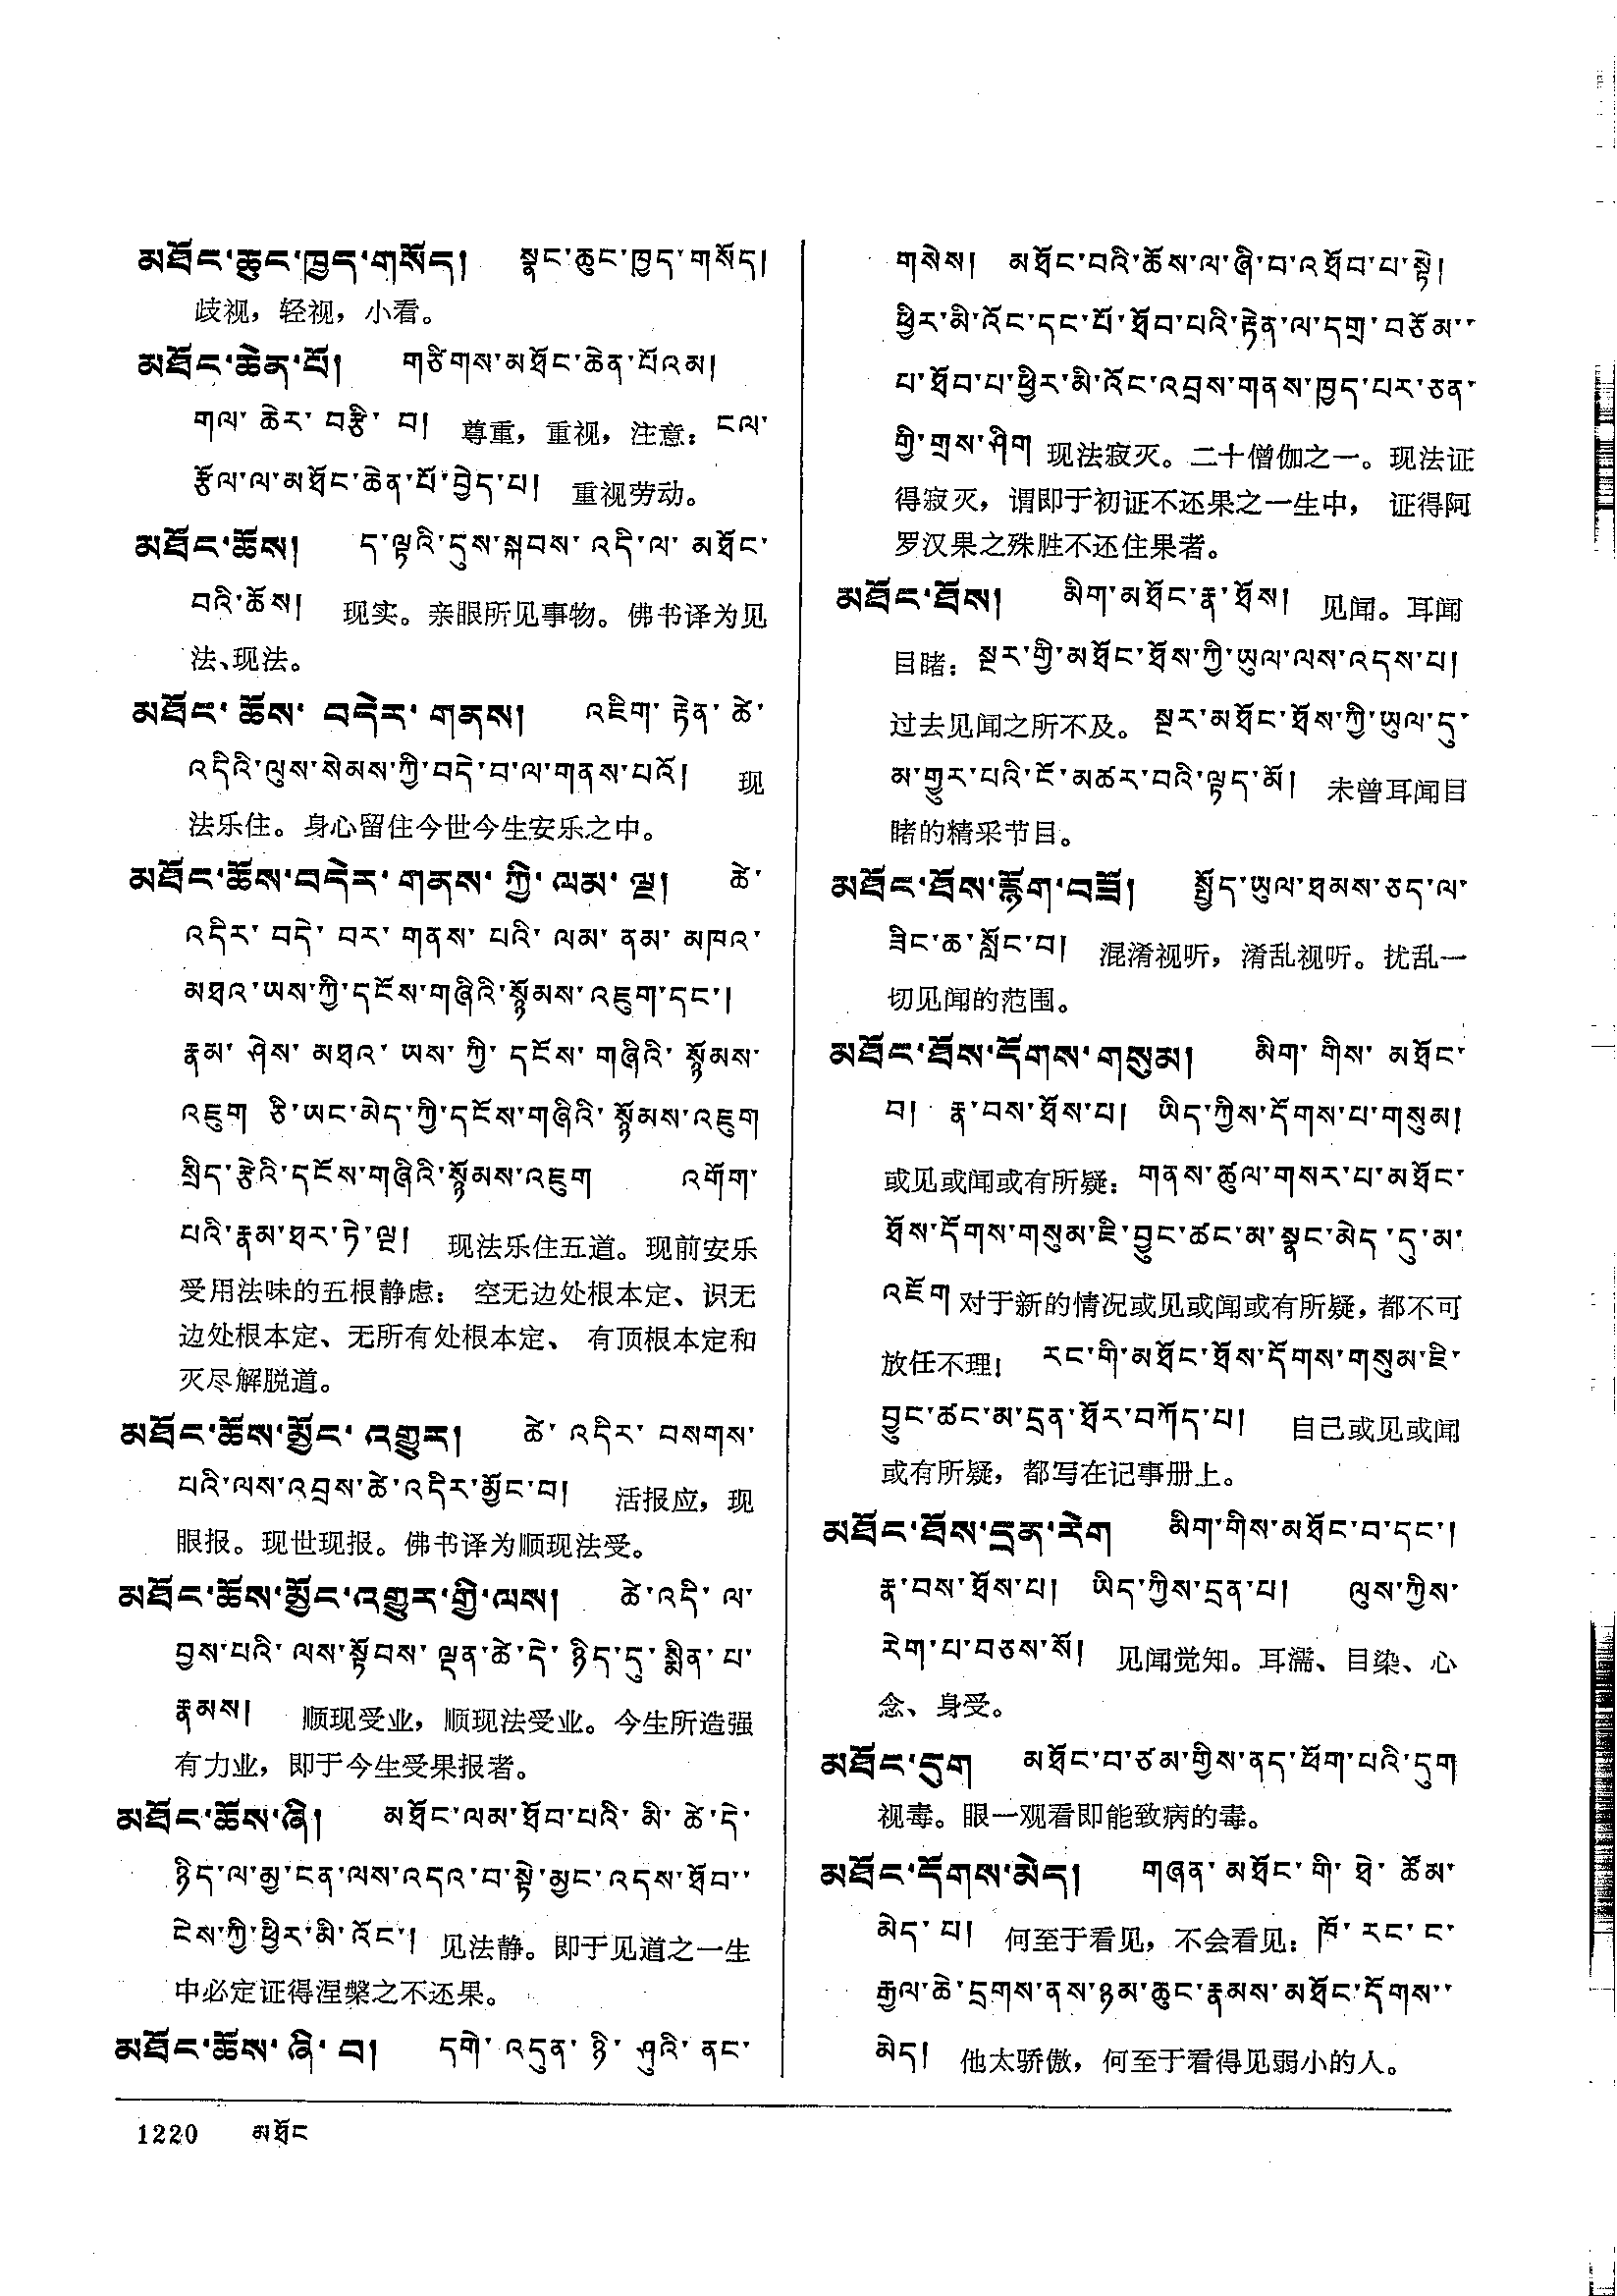 མཐོང་ཆུང་ཁྱད་གསོད། སྣང་ཆུང་ཁྱད་གསོད།
歧视，轻视，小看。
མཐོང་ཆེན་པོ། གཙིགས་མཐོང་ཆེན་པོའམ།
གལ་ ཆེར་ བརྩི་ བ། 尊重，重视，注意：ངལ་
རྩོལ་ལ་མཐོང་ཆེན་པོ་བྱེད་པ། 重视劳动。
མཐོང་ཆོས། ད་ལྟའི་དུས་སྐབས་འདི་ལ་མཐོང་
བའི་ཆོས། 现实。亲眼所见事物。佛书译为见
法、现法。
མཐོང་ཆོས་ བདེར་གནས། འཇིག་ རྟེན་ ཚེ་
འདིའི་ལུས་སེམས་ཀྱི་བདེ་བ་ལ་གནས་པའོ། 现
法乐住。身心留住今世今生安乐之中。
མཐོང་ཆོས་བདེར་གནས་ཀྱི་ལམ་ལྔ། ཚེ་
འདིར་ བདེ་ བར་ གནས་ པའི་ ལམ་ ནམ་ མཁའ་
མཐའ་ཡས་ཀྱི་དངོས་གཞིའི་སྙོམས་འཇུག་དང་།
རྣམ་ ཤེས་ མཐའ་ ཡས་ ཀྱི་ དངོས་ གཞིའི་ སྙོམས་
འཇུག ཅི་ཡང་མེད་ཀྱི་དངོས་གཞིའི་སྙོམས་འཇུག
སྲིད་རྩེའི་དངོས་གཞིའི་སྙོམས་འཇུག འགོག་
པའི་རྣམ་ཐར་ཏེ་ལྔ། 现法乐住五道。现前安乐
受用法味的五根静虑： 空无边处根本定、识无
边处根本定、无所有处根本定、 有顶根本定和
灭尽解脱道。
མཐོང་ཆོས་མྱོང་འགྱུར། ཚེ་ འདིར་ བསགས་
པའི་ལས་འབྲས་ཚེ་འདིར་མྱོང་བ། 活报应，现
眼报。现世现报。佛书译为顺现法受。
མཐོང་ཆོས་མྱོང་འགྱུར་གྱི་ལས། ཚེ་འདི་ ལ་
བྱས་པའི་ ལས་སྟོབས་ ལྡན་ཚེ་དེ་ ཉིད་དུ་སྨིན་པ་
རྣམས། 顺现受业，顺现法受业。今生所造强
有力业，即于今生受果报者。
མཐོང་ཆོས་ཞི། མཐོང་ལམ་ཐོབ་པའི་ མི་ ཚེ་དེ་
ཉིད་ལ་མྱ་ངན་ལས་འདའ་བ་སྟེ་མྱང་འདས་ཐོབ་
ངེས་ཀྱི་ཕྱིར་མི་འོང་། 见法静。即于见道之一生
中必定证得涅槃之不还果。
མཐོང་ཆོས་ཞི་བ། དགེ་ འདུན་ ཉི་ ཤུའི་ ནང་
གསེས། མཐོང་བའི་ཆོས་ལ་ཞི་བ་འཐོབ་པ་སྟེ།
ཕྱིར་མི་འོང་དང་པོ་ཐོབ་པའི་རྟེན་ལ་དགྲ་བཅོམ་
པ་ཐོབ་པ་ཕྱིར་མི་འོང་འབྲས་གནས་ཁྱད་པར་ཅན་
གྱི་གྲས་ཤིག 现法寂灭。二十僧伽之一。现法证
得寂灭，谓即于初证不还果之一生中， 证得阿
罗汉果之殊胜不还住果者。
མཐོང་ཐོས། མིག་མཐོང་རྣ་ཐོས། 见闻。耳闻
目睹：སྔར་གྱི་མཐོང་ཐོས་ཀྱི་ཡུལ་ལས་འདས་པ།
过去见闻之所不及。སྔར་མཐོང་ཐོས་ཀྱི་ཡུལ་དུ་
མ་གྱུར་པའི་ངོ་མཚར་བའི་ལྟད་མོ། 未曾耳闻目
睹的精采节目。
མཐོང་ཐོས་རྙོག་བཟོ། སྤྱོད་ཡུལ་ཐམས་ཅད་ལ་
ཟིང་ཆ་སློང་བ། 混淆视听，淆乱视听。扰乱一
切见闻的范围。
མཐོང་ཐོས་དོགས་གསུམ། མིག་ གིས་ མཐོང་
བ། རྣ་བས་ཐོས་པ། ཡིད་ཀྱིས་དོགས་པ་གསུམ།
或见或闻或有所疑：གནས་ཚུལ་གསར་པ་མཐོང་
ཐོས་དོགས་གསུམ་ཇི་བྱུང་ཚང་མ་སྣང་མེད་དུ་མ་
འཇོག 对于新的情况或见或闻或有所疑，都不可
放任不理！ རང་གི་མཐོང་ཐོས་དོགས་གསུམ་ཇི་
བྱུང་ཚང་མ་དྲན་ཐོར་བཀོད་པ། 自己或见或闻
或有所疑，都写在记事册上。
མཐོང་ཐོས་དྲན་རེག མིག་གིས་མཐོང་བ་དང་།
རྣ་བས་ཐོས་པ། ཡིད་ཀྱིས་དྲན་པ། ལུས་ཀྱིས་
རེག་པ་བཅས་སོ། 见闻觉知。耳濡、目染、心
念、身受。
མཐོང་དུག མཐོང་བ་ཙམ་གྱིས་ནད་ཕོག་པའི་དུག
视毒。眼一观看即能致病的毒。
མཐོང་དོགས་མེད། གཞན་ མཐོང་ གི་ ཐེ་ ཚོམ་
མེད་ པ། 何至于看见，不会看见：ཁོ་ རང་ ང་
རྒྱལ་ཆེ་དྲགས་ནས་ཉམ་ཆུང་རྣམས་མཐོང་དོགས་
མེད། 他太骄傲，何至于看得见弱小的人。
1220 མཐོང